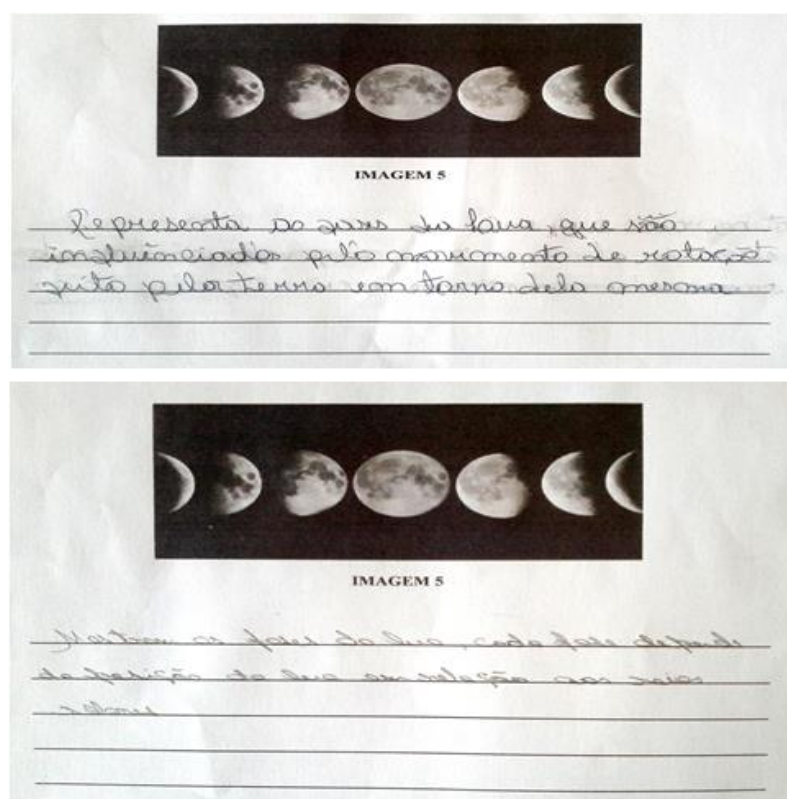 IMAGEM 5
Representa as fases da lua, que são
influênciadas pelo movimento de rotação
feito pela terra em torno dela mesma
IMAGEM 5
Mostram as fases da lua, cada fase depende
da posição da lua em relação aos raios
solares